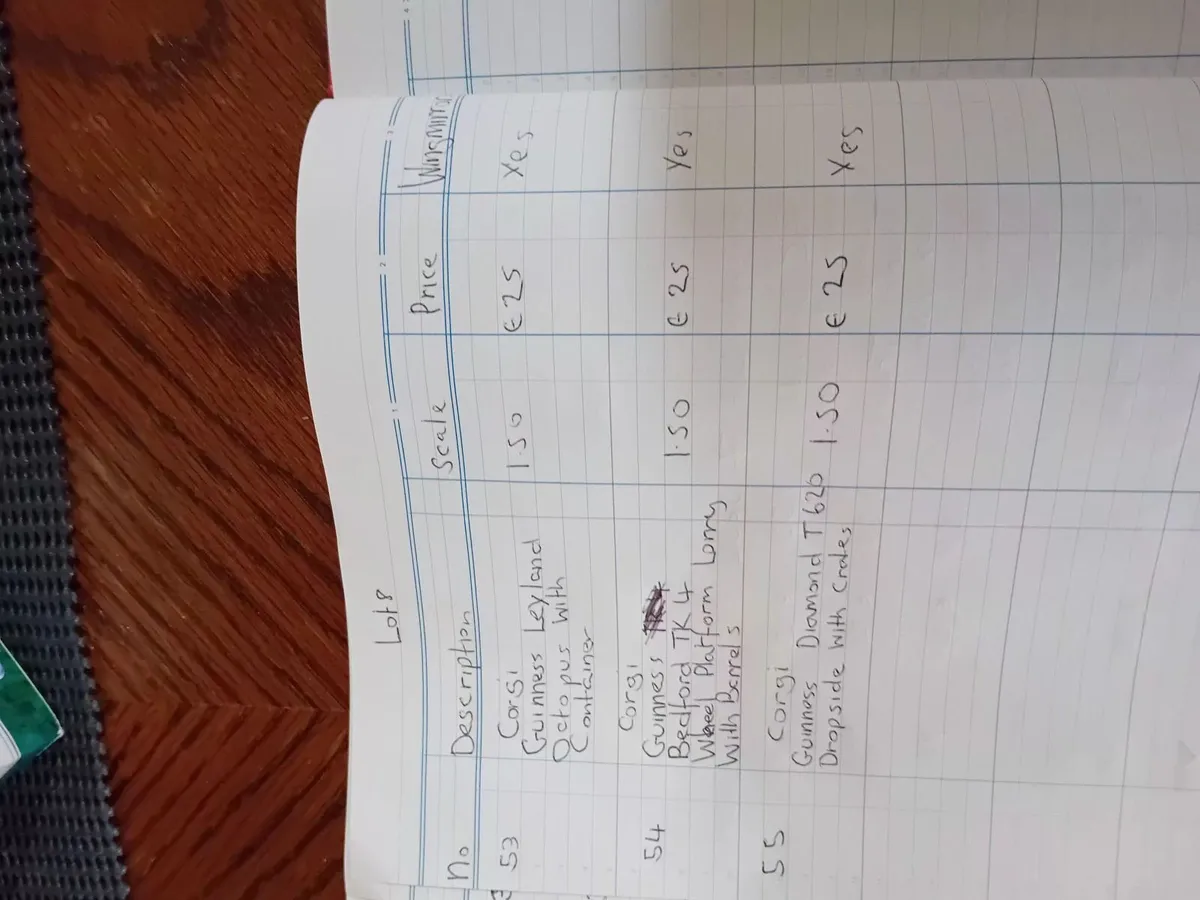 Lot 8
No Description Scale Price Wingmirror
53 Corgi 1.50 €25 Yes
Guinness Leyland
Octopus with
Container
54 Corgi
Guinness
Bedford TK 4 1.50 €25 Yes
Wheel Platform Lorry
With Barrels
55 Corgi
Guinness Diamond T 620 1.50 €25 Yes
Dropside with Crates